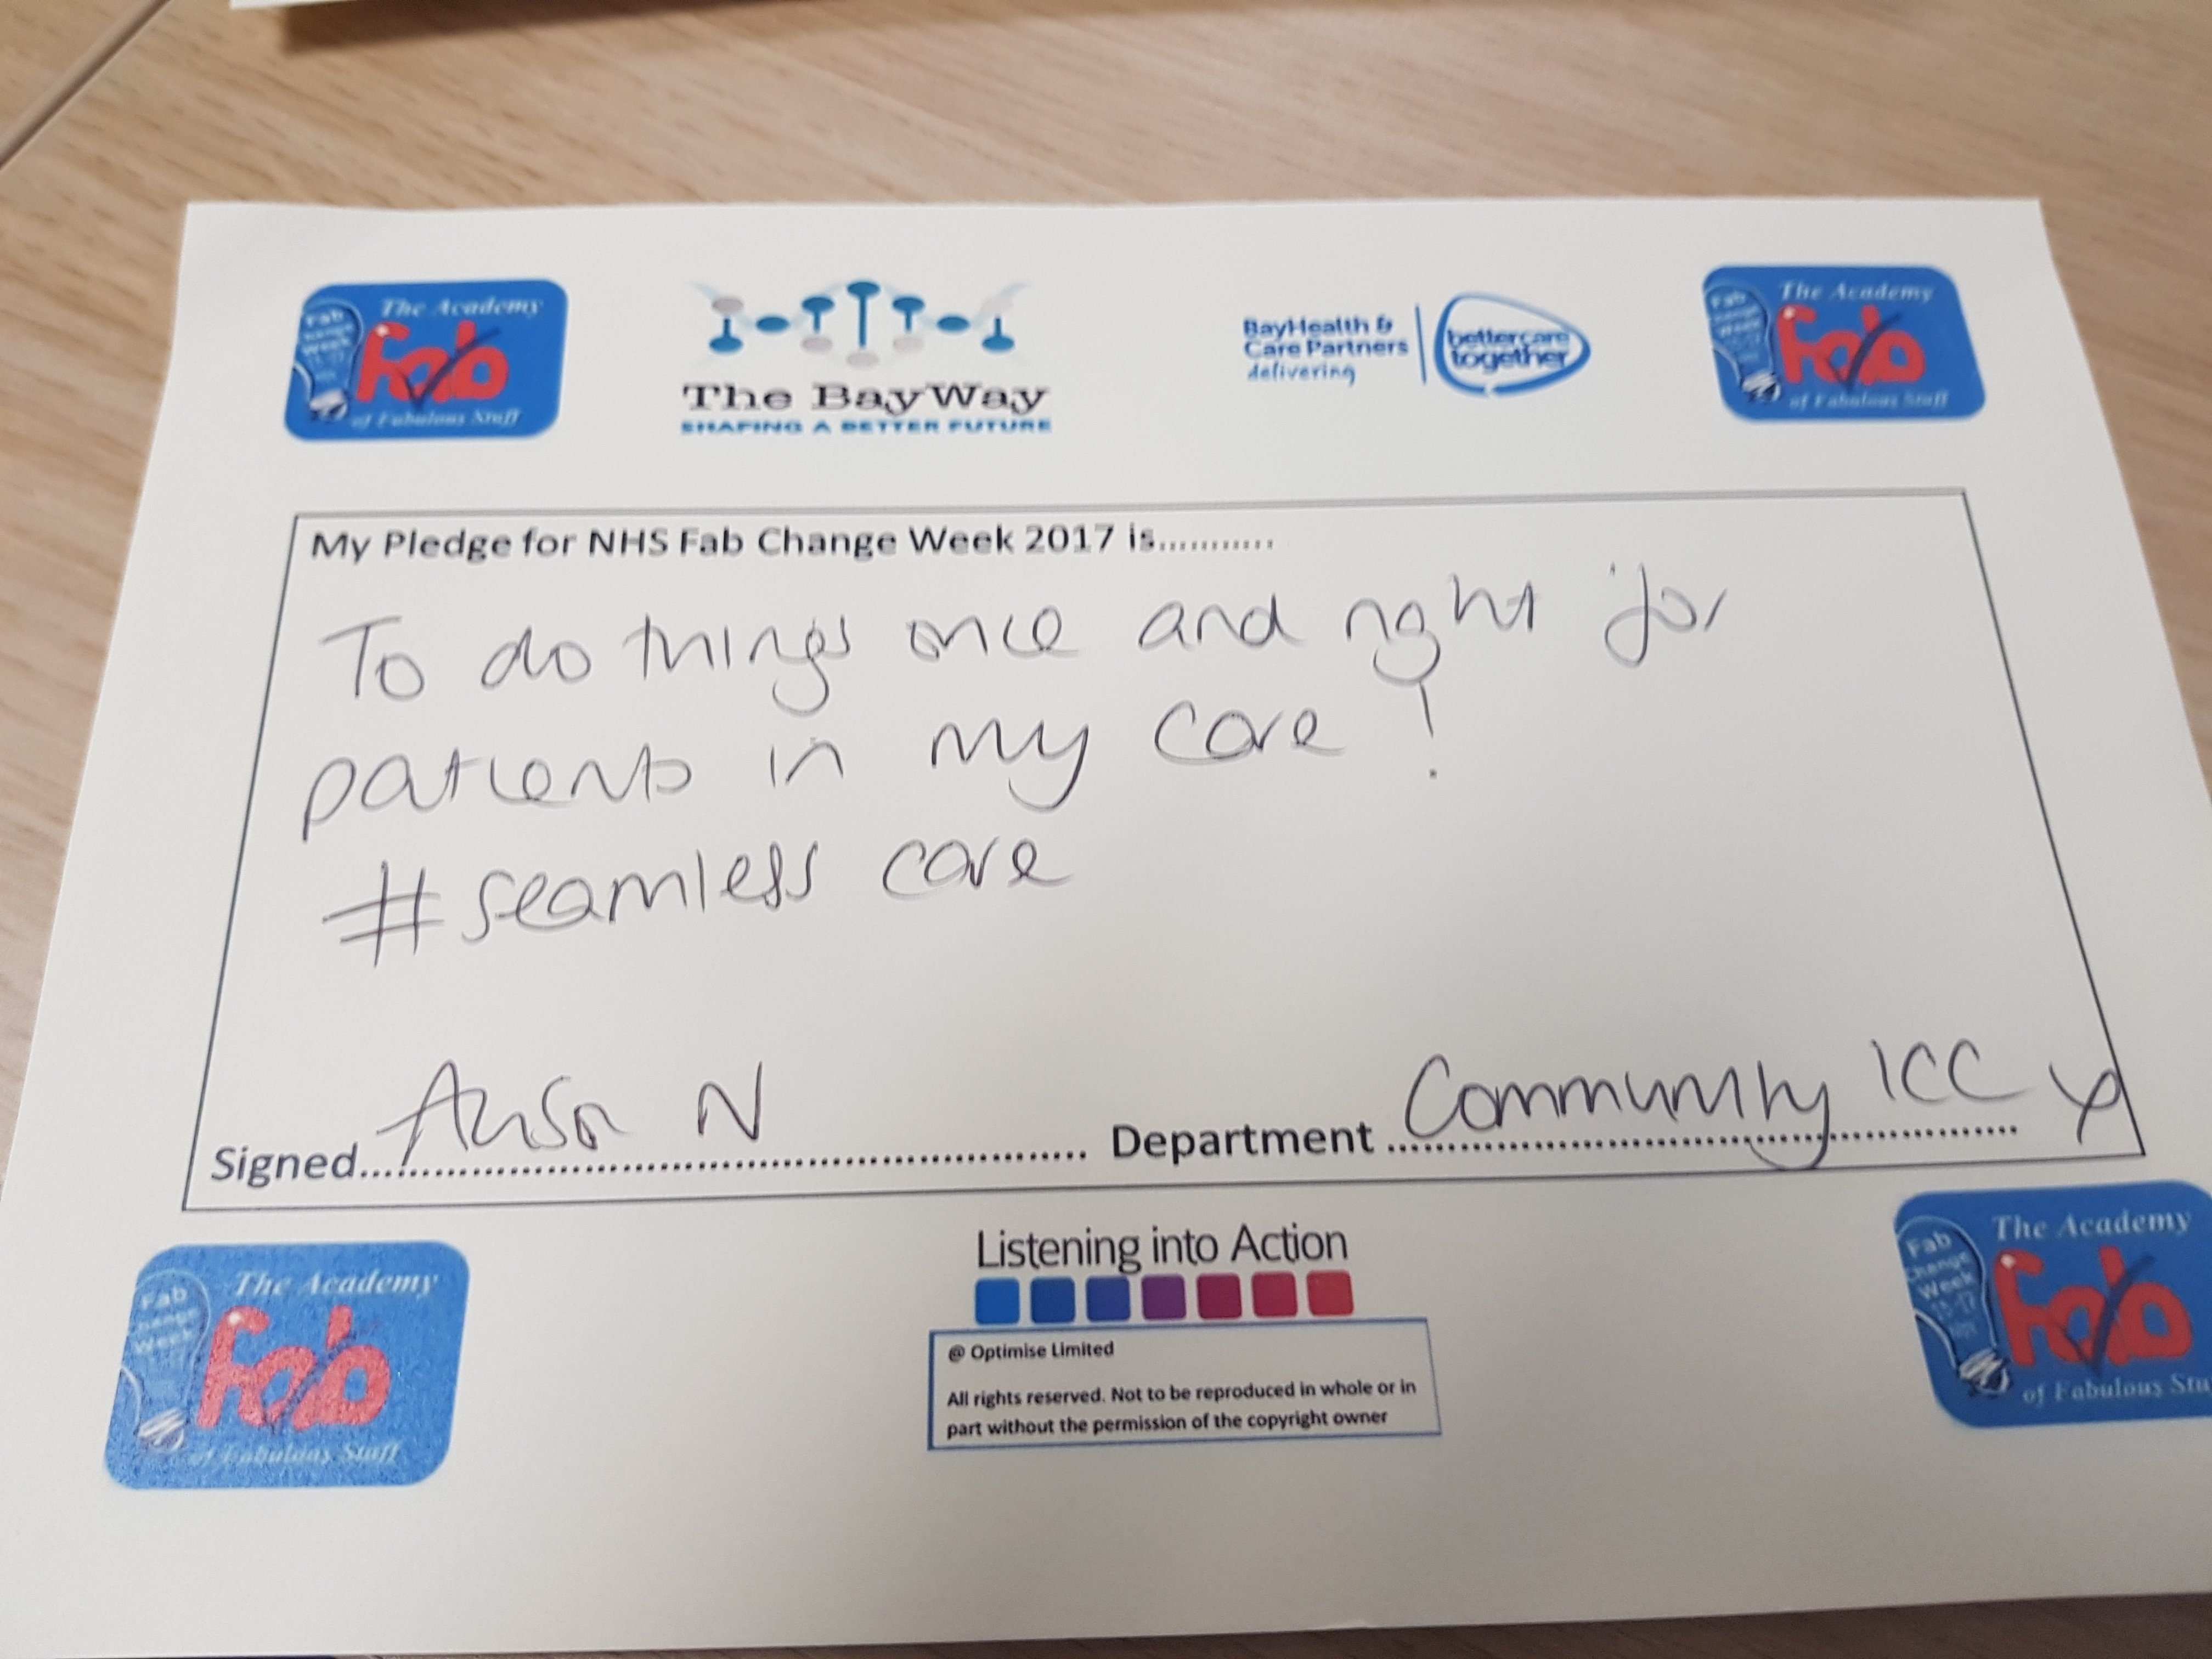 The Academy
Fab
Change
Week
Fab
of Fabulous Stuff
The BayWay
SHAPING A BETTER FUTURE
BayHealth &
Care Partners
delivering
bettercare
together
The Academy
Fab
Change
Week
Fab
of Fabulous Stuff
My Pledge for NHS Fab Change Week 2017 is...........
To do things once and right for
patients in my care!
#seamless care
Signed... Alison N ... Department ... Community ICC x
The Academy
Fab
Change
Week
Fab
of Fabulous Stuff
Listening into Action
@ Optimise Limited
All rights reserved. Not to be reproduced in whole or in
part without the permission of the copyright owner
The Academy
Fab
Change
Week
Fab
of Fabulous Stu